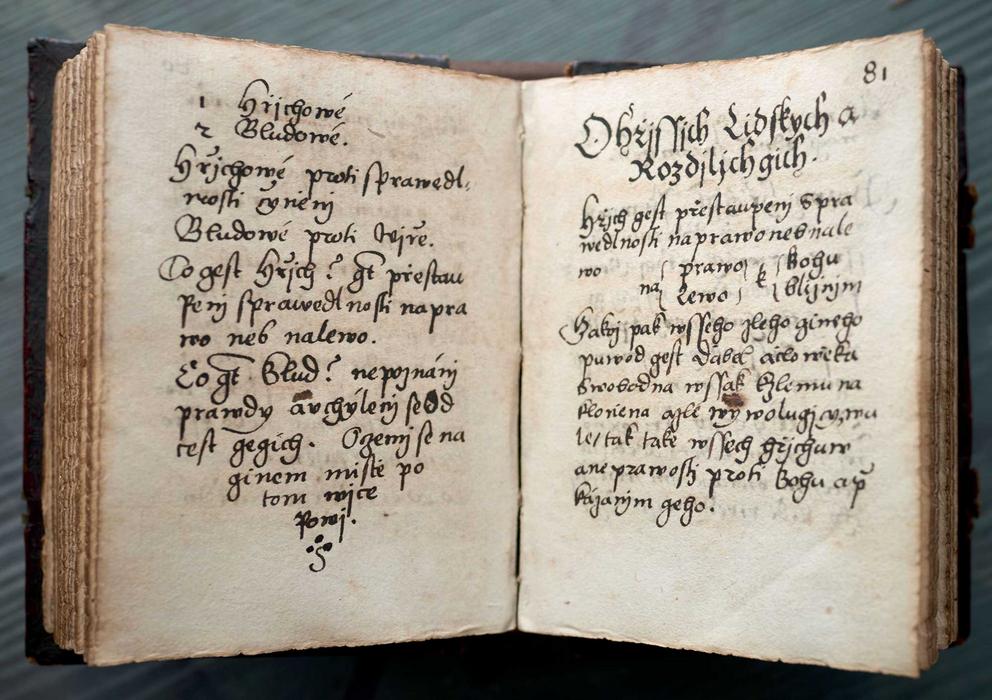 1 Hřjchowé
2 Bludowé.
Hřjchowé proti sprawedl-
nosti cyněnj
Bludowé proti Wjře.
Co gest Hřjch? gt přestau
penj sprawedlnosti na pra
wo neb nalewo.
Co gt Blud? nepoznánj
prawdy a vchýlenj se od
cest gegich. O čemž se na
giném mistě po
tom wjce
Powj.
81
O hřjssjch Lidských a
Rozdjljch gich.
Hřjch gest přestaupenj Spra
wedlnosti na prawo neb nale
wo na prawo k Bohu
Lewo bližnjm
Yakož pak wsseho zlého giného
puwod gest Ďábel a člowěka
Swobodná wssak k zlému na
kloněná a zlé wywolugjcý wů
le, tak také wssech hřjchůw
a neprawostj proti Bohu a př
kázanjm geho.